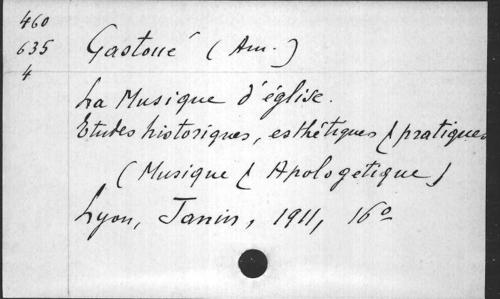 460
635
4
Gastoué (Am.)
La Musique d'église.
Etudes historiques, esthétiques & pratiques
(Musique & Apologetique)
Lyon, Janin, 1911, 16º